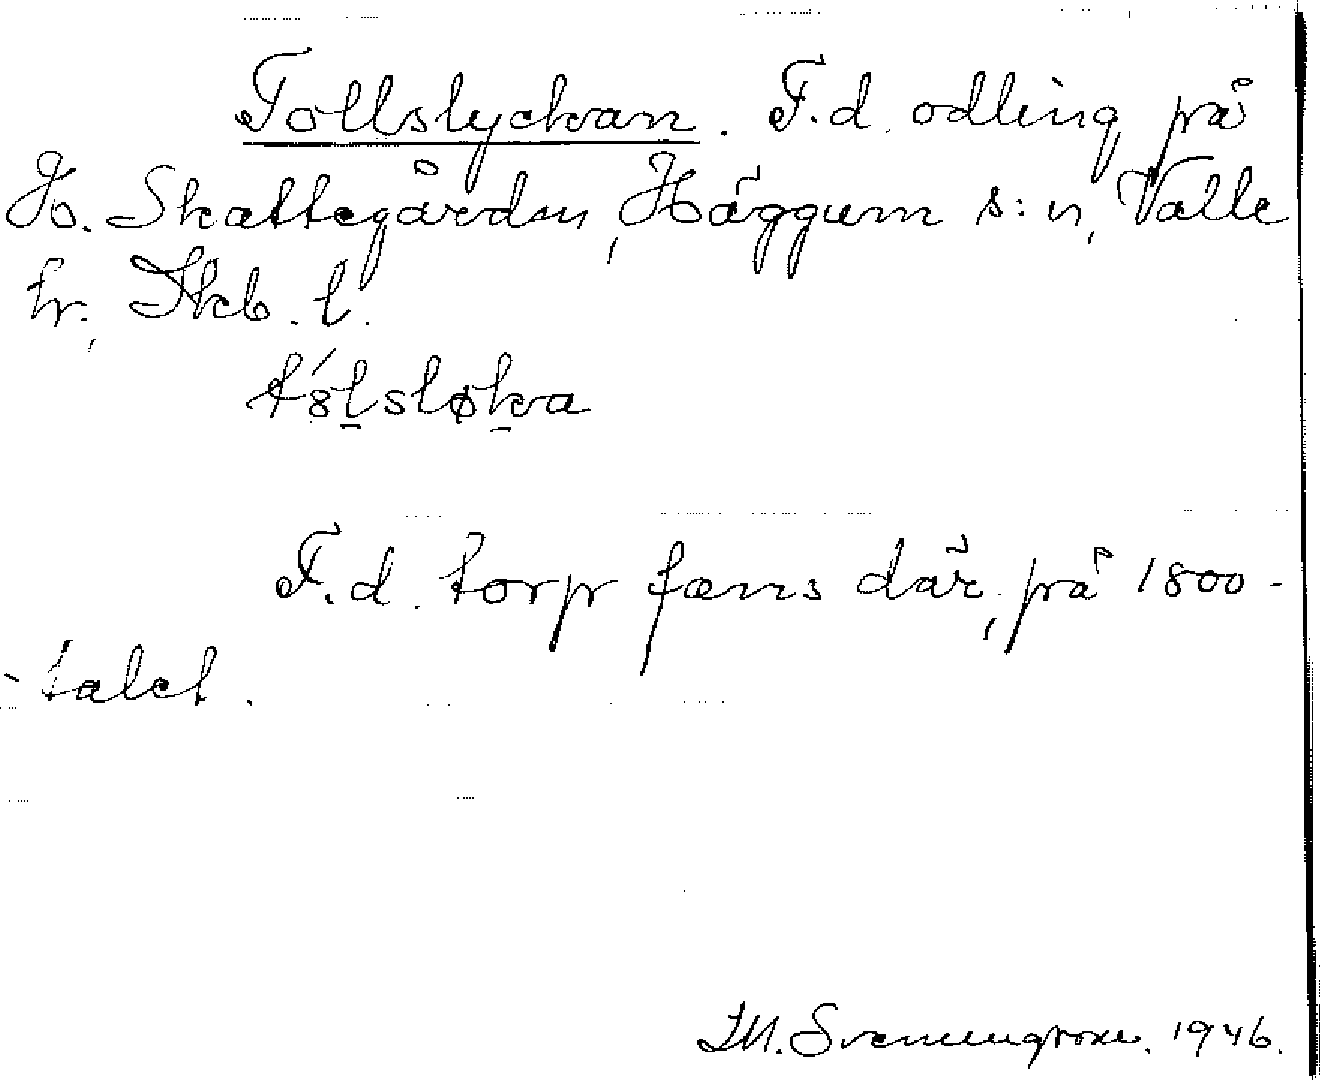 Tollslyckan. F.d. odling på
H. Skattegården, Häggum s:n, Valle
hr, Skb. l.
tʹ8l̠sløk̠va
F.d. torp fanns där, på 1800-
-talet.
1946.